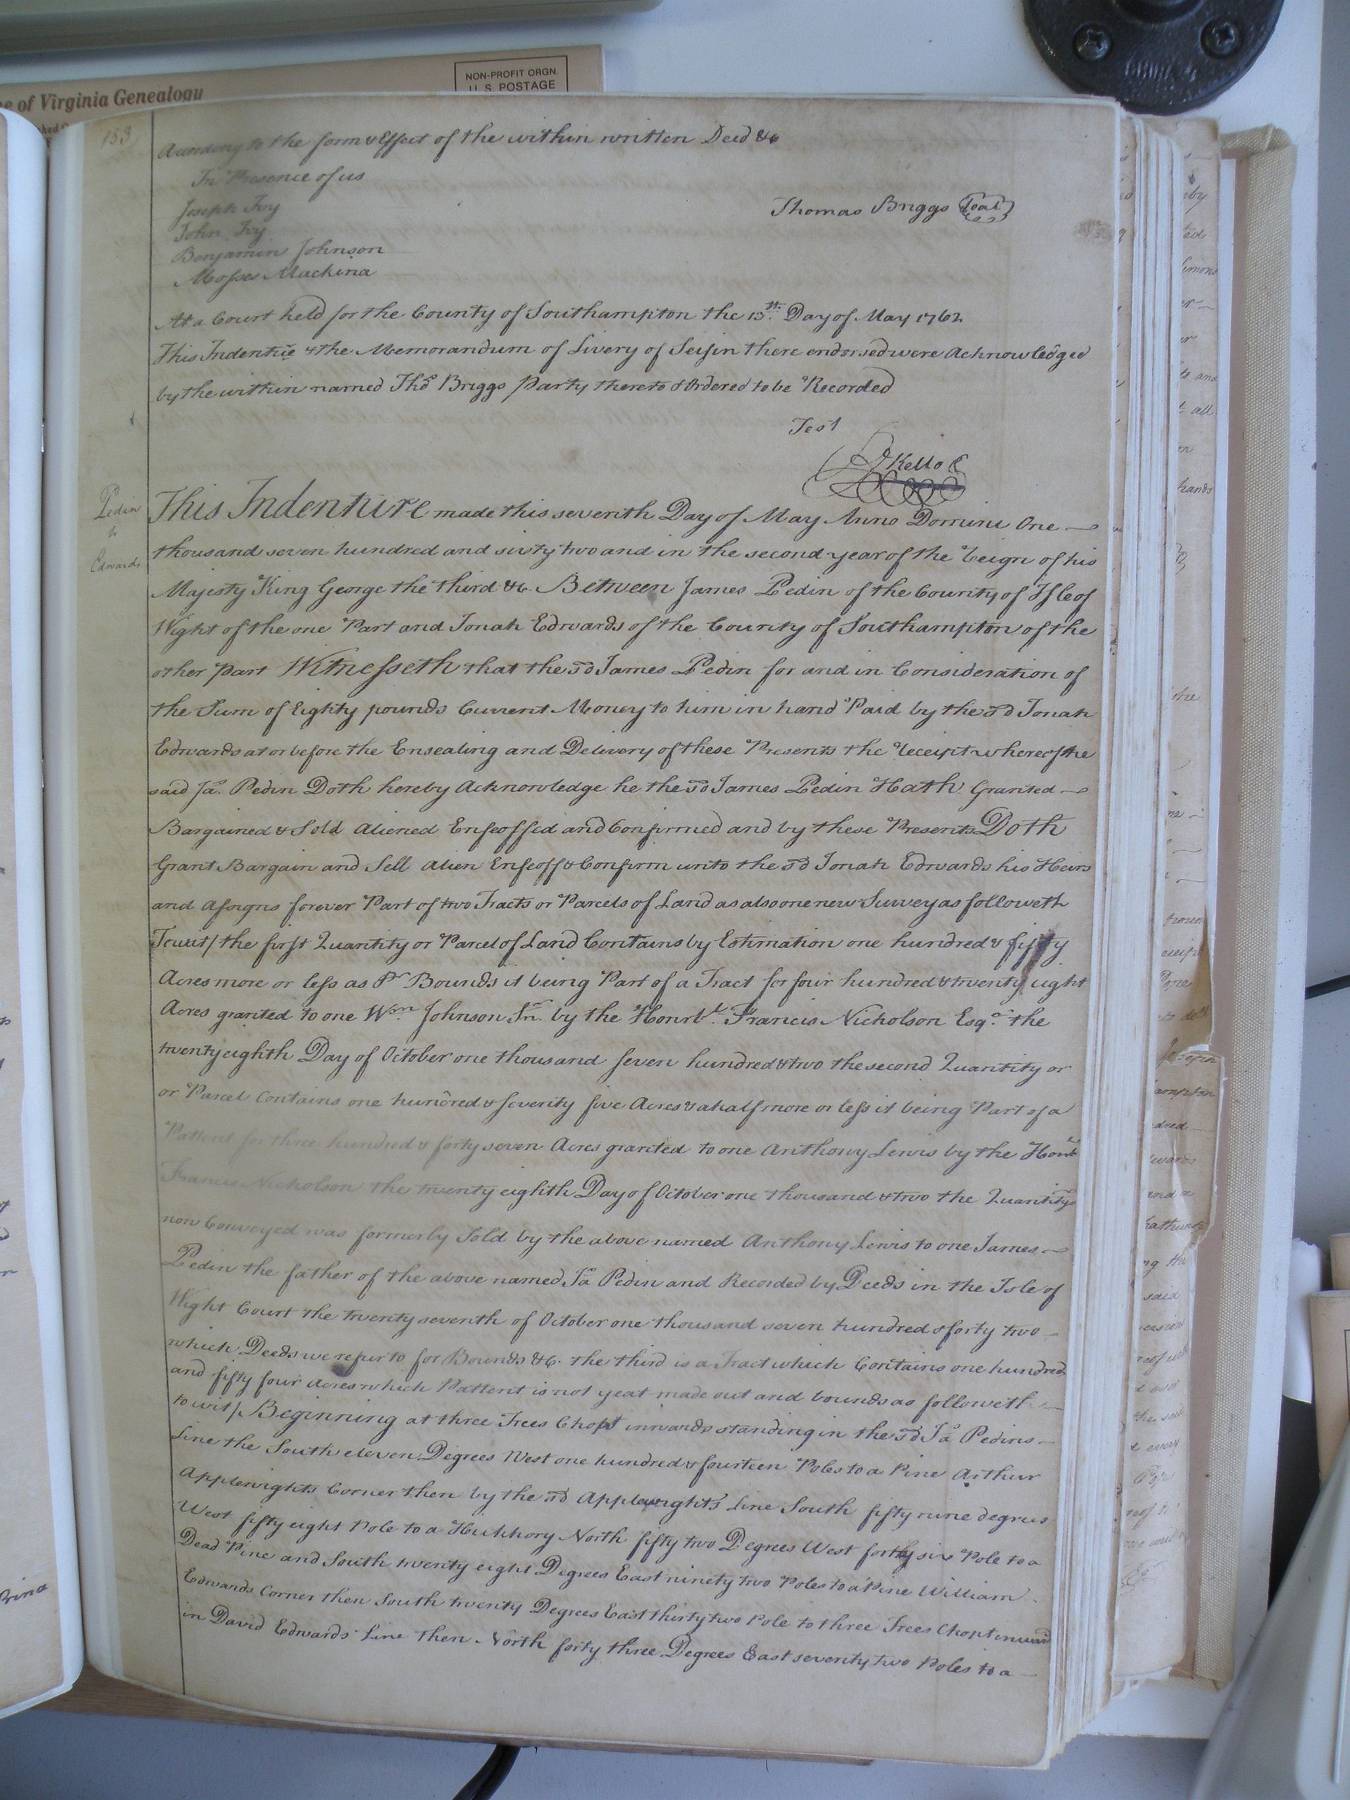 e of Virginia Genealogy
NON-PROFIT ORGN.
U.S. POSTAGE
183
According to the form & Effect of the within written Deed &c
In Presence of us
Joseph Ivy
Thomas Briggs Seal
John Ivy
Benjamin Johnson
Mosses Mackina
At a Court held for the County of Southampton the 13th. Day of May 1762
This Indentūe & the Memorandum of Livery of Seisin there endorsed were Acknowledged
by the within named Thos Briggs Party thereto & Ordered to be Recorded
Test
Kello C
Pedin
to
Edwards
This Indenture made this seventh Day of May Anno Domini One
thousand seven hundred and sixty two and in the second year of the Reign of his
Majesty King George the third &c Between James Pedin of the County of Isle of
Wight of the one Part and Jonah Edwards of the County of Southampton of the
other part Witnesseth that the sd James Pedin for and in Consideration of
the Sum of Eighty pounds Current Money to him in hand Paid by the sd Jonah
Edwards at or before the Ensealing and Delivery of these Presents the Receipt whereof he
said Ja. Pedin Doth hereby Acknowledge he the sd James Pedin Hath Granted
Bargained & Sold Aliened Enfeoffed and Confirmed and by these Presents Doth
Grant Bargain and Sell Alien Enfeoff & Confirm unto the sd Jonah Edwards his Heirs
and Assigns forever Part of two Tracts or Parcels of Land as also one new Survey as followeth
Towit/ the first Quantity or Parcel of Land Contains by Estimation one hundred & fifty
Acres more or less as Pr Bounds it being Part of a Tract for four hundred & twenty eight
Acres granted to one Wm. Johnson Sr. by the Honrbl. Francis Nicholson Esqr. the
twenty eighth Day of October one thousand seven hundred & two the second Quantity or
or Parcel Contains one hundred & seventy five Acres & a half more or less it being Part of a
Pattent for three hundred & forty seven Acres granted to one Anthony Lewis by the Honrb
Francis Nicholson the twenty eighth Day of October one thousand & two the Quantitys
now Conveyed was formerly Sold by the above named Anthony Lewis to one James
Pedin the father of the above named Ja Pedin and Recorded by Deeds in the Isle of
Wight Court the twenty seventh of October one thousand seven hundred & forty two
which Deeds we refer to for Bounds &c. the third is a Tract which Contains one hundred
and fifty four Acres which Pattent is not yeat made out and bounds as followeth
to wit/ Beginning at three Trees Chopt inwards standing in the sd Ja Pedins
Line the South eleven Degrees West one hundred & fourteen Poles to a Pine Arthur
Applewrights Corner then by the sd Applewrights Line South fifty nine degrees
West fifty eight Pole to a Hickhory North fifty two Degrees West forty six Pole to a
Dead Pine and South twenty eight Degrees East ninety two Poles to a Pine William
Edwards Corner then South twenty Degrees East thirty two Pole to three Trees Chopt inward
in David Edwards Line then North forty three Degrees East seventy two Poles to a